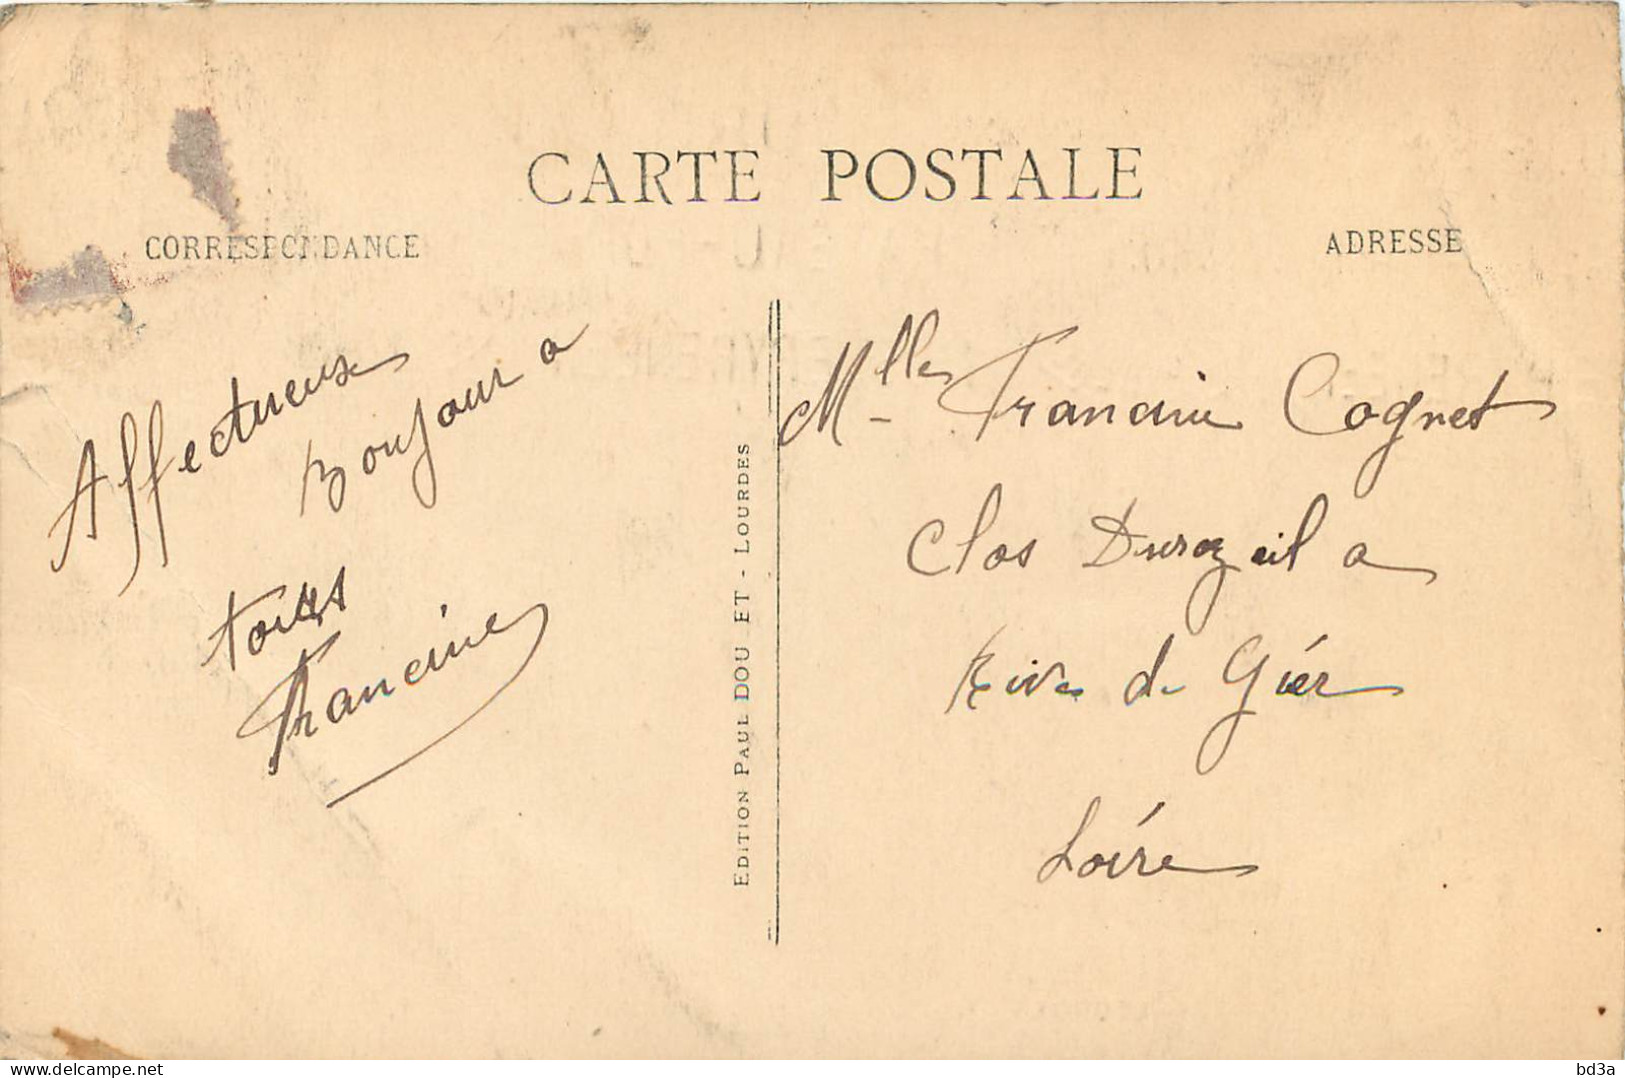 CARTE POSTALE
CORRESPONDANCE
ADRESSE
Affectueux
Bonjour a
toutes
Francine
EDITION PAUL DOU ET - LOURDES
Mlle Francine Cognet
Clos Durozeil a
Rive de Giér
Loire
delcampe.net
bd3a